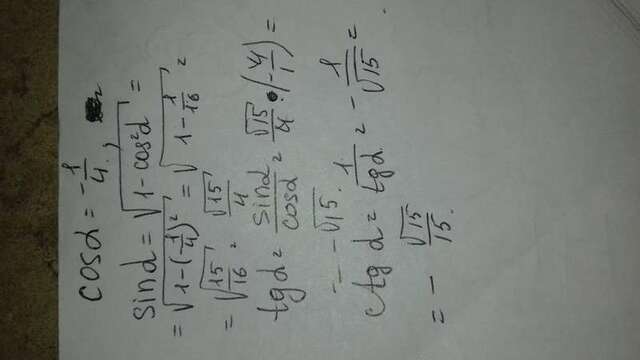 cosα = -1/4,
sinα = √(1-cos²α) =
= √(1-(-1/4)²) = √(1-1/16) =
= √(15/16) = √15/4
tgα = sinα/cosα = √15/4 · (-4/1) =
= -√15.
ctg α = 1/tgα = -1/√15 =
= - √15/15.